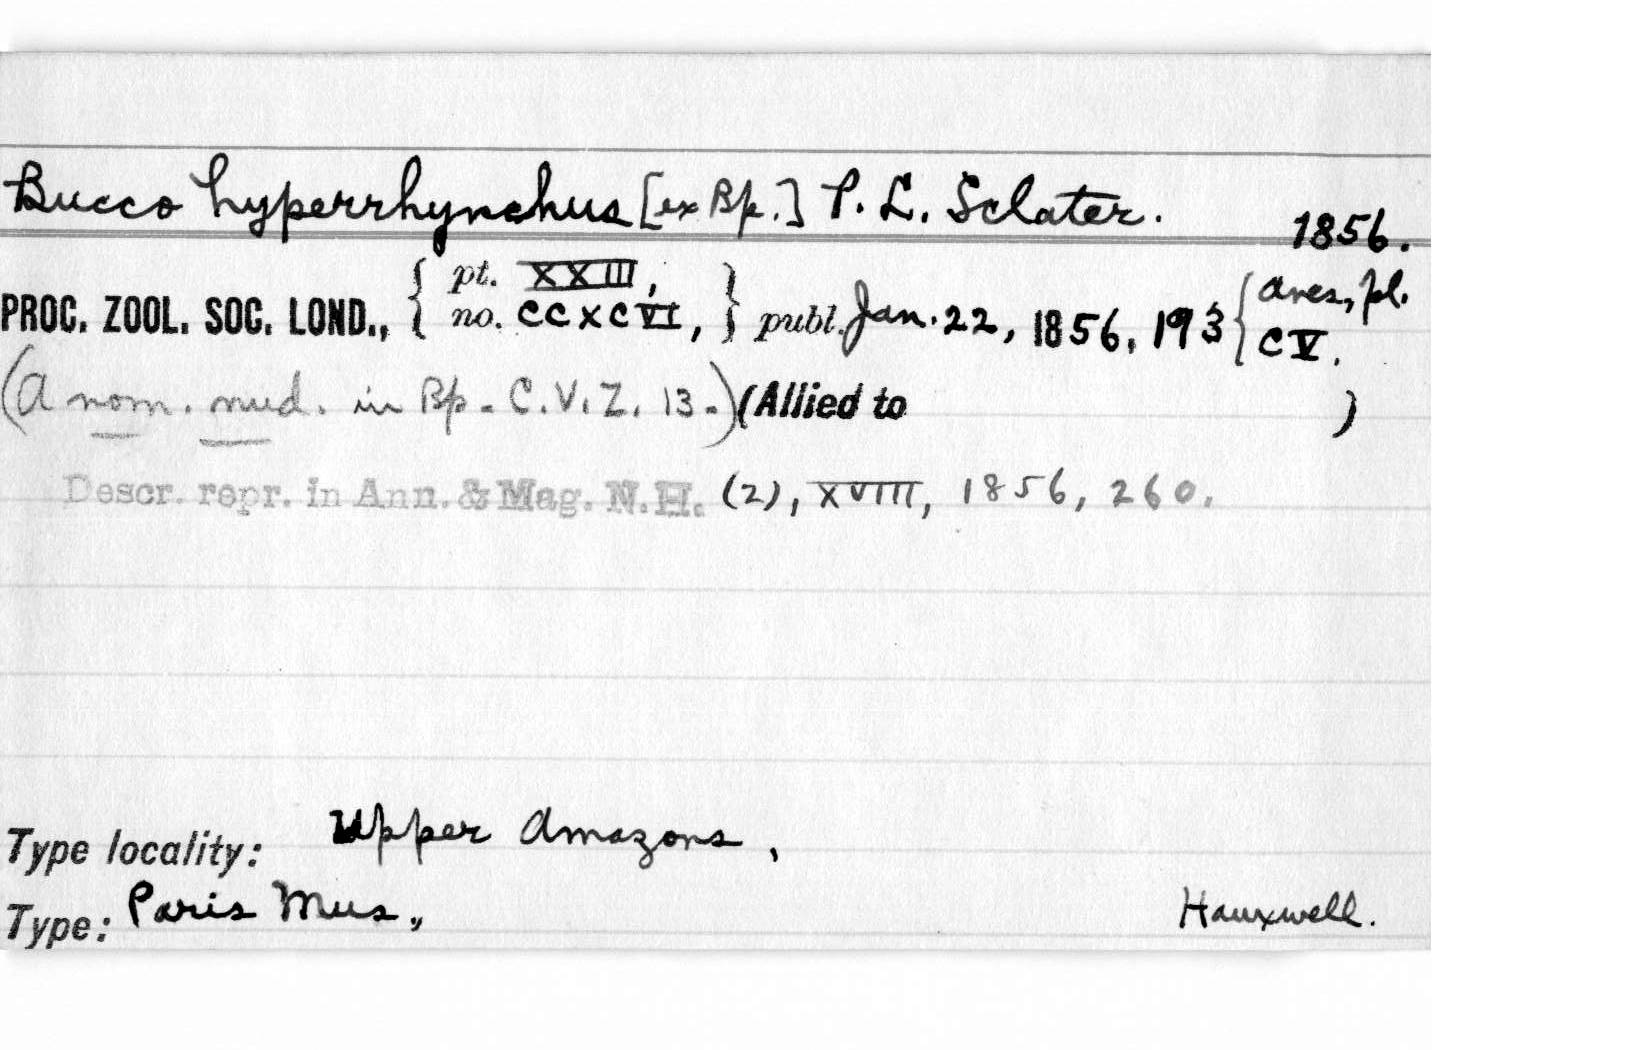 Bucco hyperrhynchus [ex Bp.] P. L. Sclater. 1856.
PROC. ZOOL. SOC. LOND., { pt. XXIII, no. CCXCVI, } publ. Jan. 22, 1856, 193 { Aves, pl. CV.
(A nom. nud. in Bp. C.V.Z. 13.) (Allied to )
Descr. repr. in Ann. & Mag. N.H. (2), XVIII, 1856, 260.
Type locality: Upper Amazons,
Type: Paris Mus., Hauxwell.